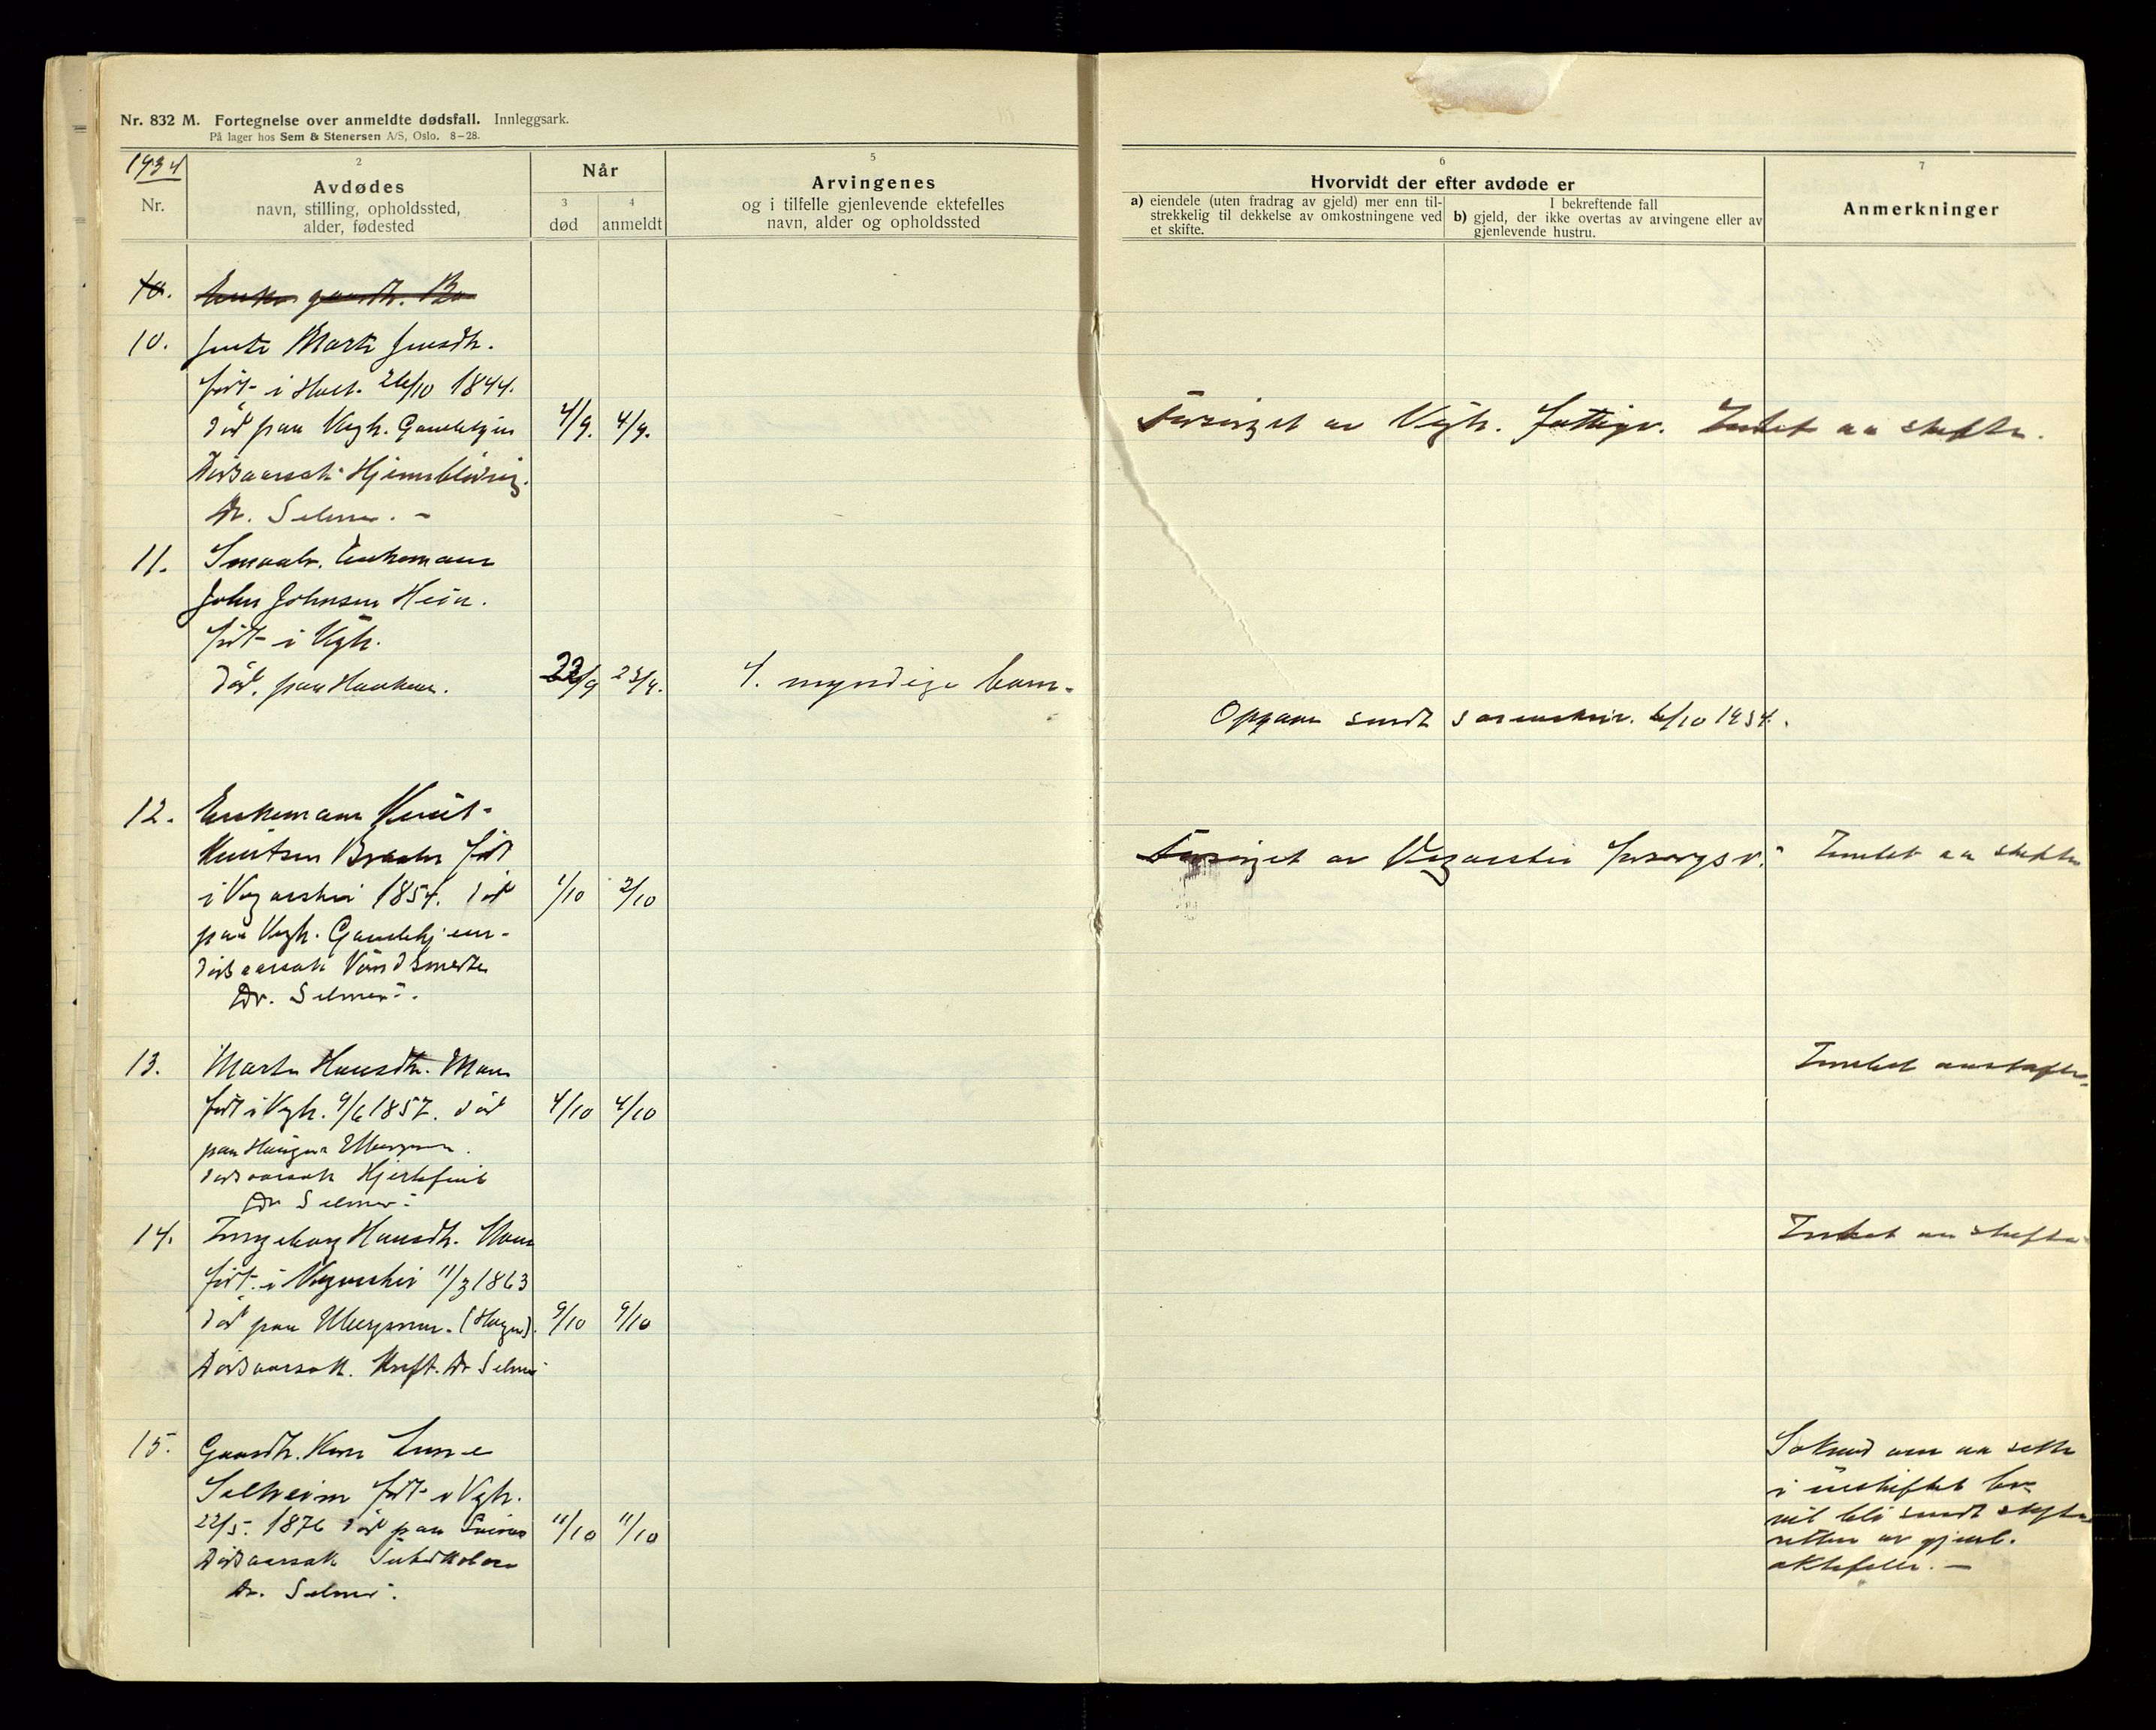 Nr. 832 M. Fortegnelse over anmeldte dødsfall. Innleggsark.
På lager hos Sem & Stenersen A/S, Oslo. 8–28.
1934
Nr.
2
Avdødes
navn, stilling, opholdssted,
alder, fødested
Når
3
død
4
anmeldt
5
Arvingenes
og i tilfelle gjenlevende ektefelles
navn, alder og opholdssted
6
Hvorvidt der efter avdøde er
a) eiendele (uten fradrag av gjeld) mer enn til-
strekkelig til dekkelse av omkostningene ved
et skifte.
I bekreftende fall
b) gjeld, der ikke overtas av arvingene eller av
gjenlevende hustru.
7
Anmerkninger
10.
10. Jente Marte Jensdtr.
født i Holt 26/10 1844.
død paa Vegh. Gamlehjem 4/9. 4/9. Forsørget av Vegh. fattigv. Intet aa skifte.
Dødsaarsak Hjerneblødning.
Dr. Selmer. -
11. Smaabr. Enkemann
John Johnsen Hein.
født i Vegh.
død. paa 22/9 23/9. 4. myndige barn.
Opgave sendt sorenskriv. 6/10 1934.
12. Enkemann Knut
Knutsen født
i Vegaarshei 1854. død 1/10 2/10 Forsørget av Vegaarshei forsorgsv. Intet aa skifte
paa Vegh. Gamlehjem.
dødsaarsak
Dr. Selmer.
13. Marte Hansdtr. Moen Intet aa skifte.
født i Vegh. 9/6 1857. død 4/10 4/10
paa
dødsaarsak Hjertefeil
Dr Selmer.
14. Ingeborg Hansdtr. Intet aa skifte
født i Vegaarshei 11/3 1863
død paa (Hagen). 9/10 9/10
Dødsaarsak. Kreft. Dr Selmer
15. Gaardbr. Kone
Solheim født i Vegh.
22/5. 1876 død paa 11/10 11/10
Dødsaarsak Tuberkolose
Dr. Selmer.
Søknad om aa sitte
i uskiftet bo
vil bli sendt skifte
retten av gjenl.
ektefelle. —